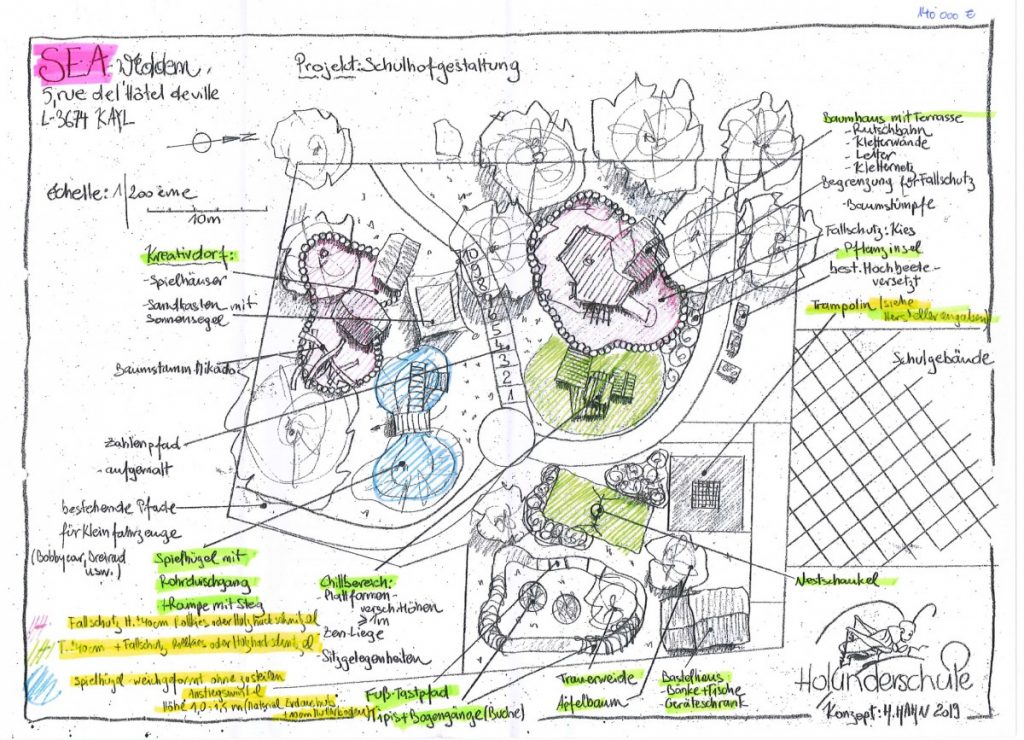 140 000 €
SEA Widdem,
5, rue de l'Hôtel de ville
L-3674 KAYL
Projekt: Schulhofgestaltung
N
échelle: 1/200 ème
10m
Kreativdorf:
-Spielhäuser
-Sandkasten mit
Sonnensegel
Baumstamm-Mikado
Zahlenpfad
-aufgemalt
bestehende Pfade
für Kleinfahrzeuge
(Bobbycar, Dreirad
usw.)
Spielhügel mit
Rohrdurchgang
+Rampe mit Steg
Fallschutz H. 40cm Rollkies oder Holzhackschnitzel
T. 40cm + Fallschutz Rollkies oder Holzhackschnitzel
Spielhügel-weichgeformt ohne zu steilen
Anstiegswinkel
Höhe 1,0-1,5 m (Material Erdaushub
Chillbereich:
-Plattformen
versch. Höhen
≥ 1m
-Zen-Liege
-Sitzgelegenheiten
Fuß-Tastpfad
Tipis+Bogengänge (Buche)
10
9
8
4
3
2
1
Baumhaus mit Terrasse
-Rutschbahn
-Kletterwände
-Leiter
-Kletternetz
Begrenzung für Fallschutz
-Baumstümpfe
Fallschutz: Kies
Pflanzinsel
best. Hochbeete-
versetzt
Trampolin (siehe
Herstellerangaben)
Schulgebäude
Nestschaukel
Trauerweide
Apfelbaum
Bastelhaus
Bänke+Tische
Geräteschrank
Holunderschule
Konzept: H. HAHN 2019